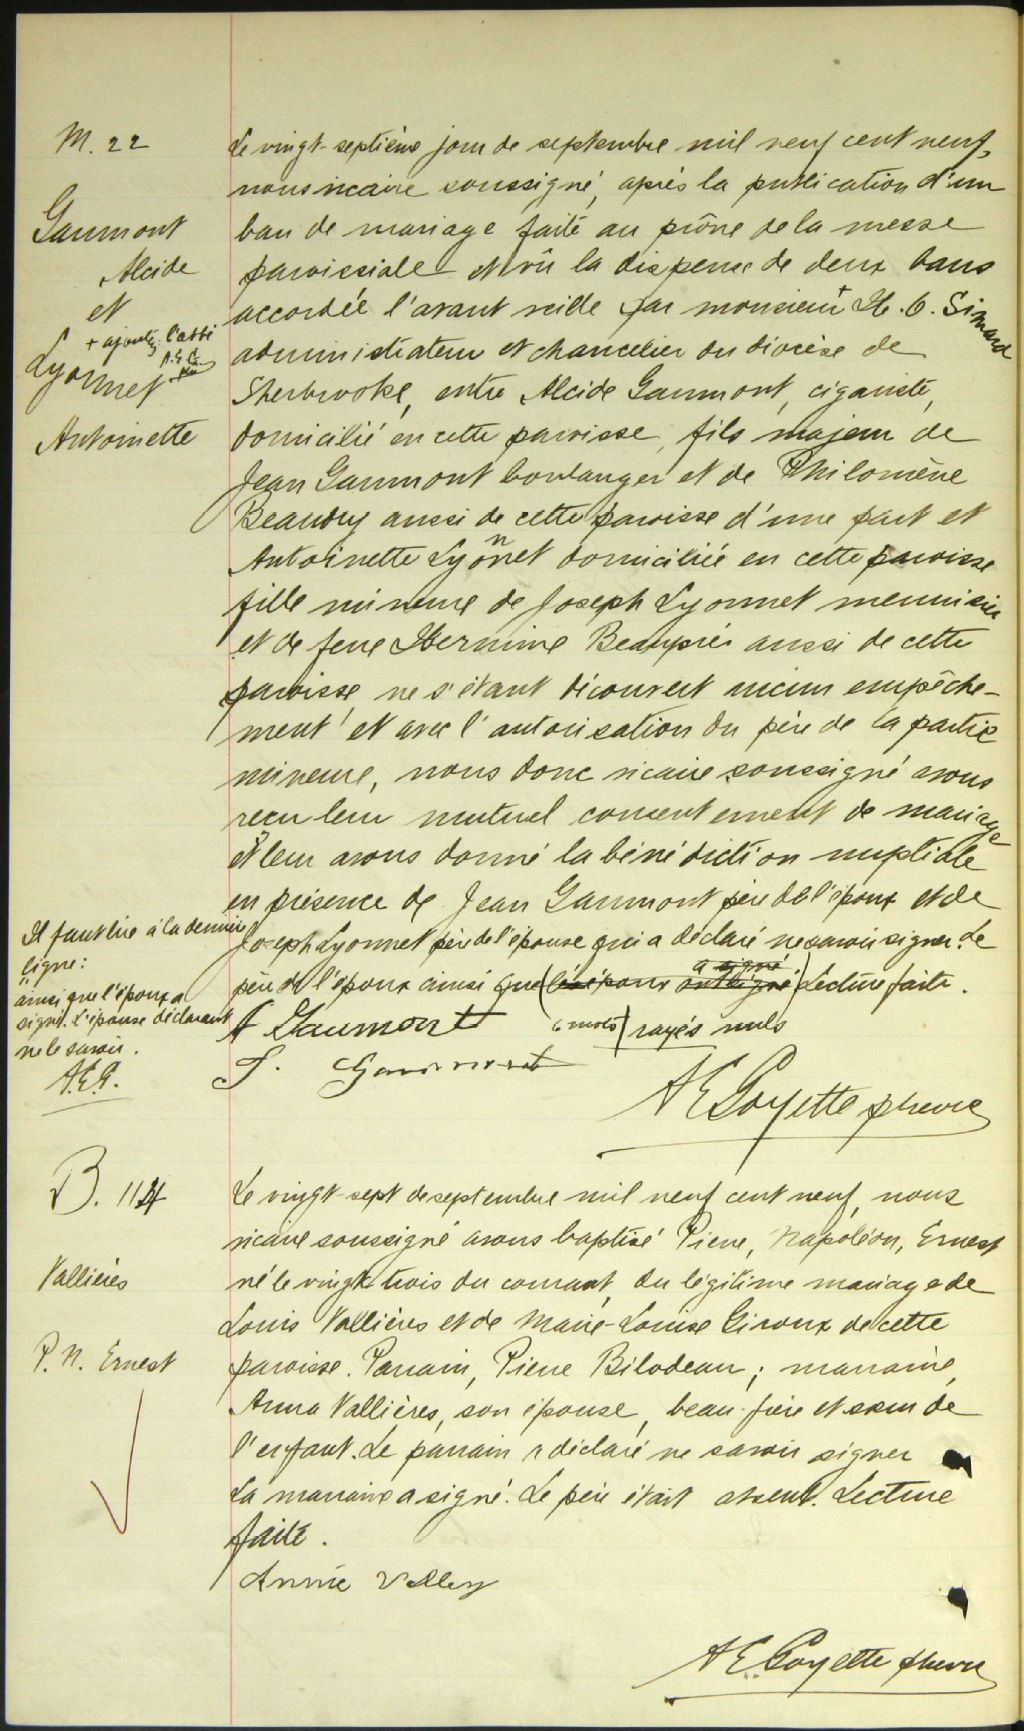 M. 22
Gaumont
Alcide
et
+ ajoutez: l'abbé
A.E.G.
Lyonnet
Antoinette
Le vingt-septième jour de septembre mil neuf cent neuf,
nous vicaire soussigné, après la publication d'un
ban de mariage faite au prône de la messe
paroissiale et vu la dispense de deux bans
accordée l'avant veille par monsieur + H. O. Simard
administrateur et chancelier du diocèse de
Sherbrooke, entre Alcide Gaumont, cigariste,
domicilié en cette paroisse, fils majeur de
Jean Gaumont boulanger et de Philomène
Beaudry aussi de cette paroisse d'une part et
Antoinette Lyonnet domiciliée en cette paroisse
fille mineure de Joseph Lyonnet menuisier
et de feue Hermine Beaupré aussi de cette
paroisse, ne s'étant découvert aucun empêche-
ment et avec l'autorisation du père de la partie
mineure, nous donc vicaire soussigné avons
reçu leur mutuel consentement de mariage
et leur avons donné la bénédiction nuptiale
en présence de Jean Gaumont père de l'époux et de
Joseph Lyonnet père de l'épouse qui a déclaré ne savoir signer. Le
père de l'époux ainsi que (les époux ont signé a signé) Lecture faite.
Il faut lire à la dernière
ligne:
"ainsi que l'époux a
signé. l'épouse déclarant
ne le savoir.
A.E.G.
A Gaumont
6 mots rayés nuls
J. Gaumont
A E Goyette ptre vic
B. 114
Vallières
P. N. Ernest
Le vingt-sept de septembre mil neuf cent neuf, nous
vicaire soussigné avons baptisé Pierre, Napoléon, Ernest
né le vingt-trois du courant, du légitime mariage de
Louis Vallières et de Marie-Louise Giroux de cette
paroisse. Parrain, Pierre Bilodeau; marraine,
Anna Vallières, son épouse, beau-frère et sœur de
l'enfant. Le parrain a déclaré ne savoir signer
La marraine a signé. Le père était absent. Lecture
faite.
Annie Valley
A E. Goyette ptre vic